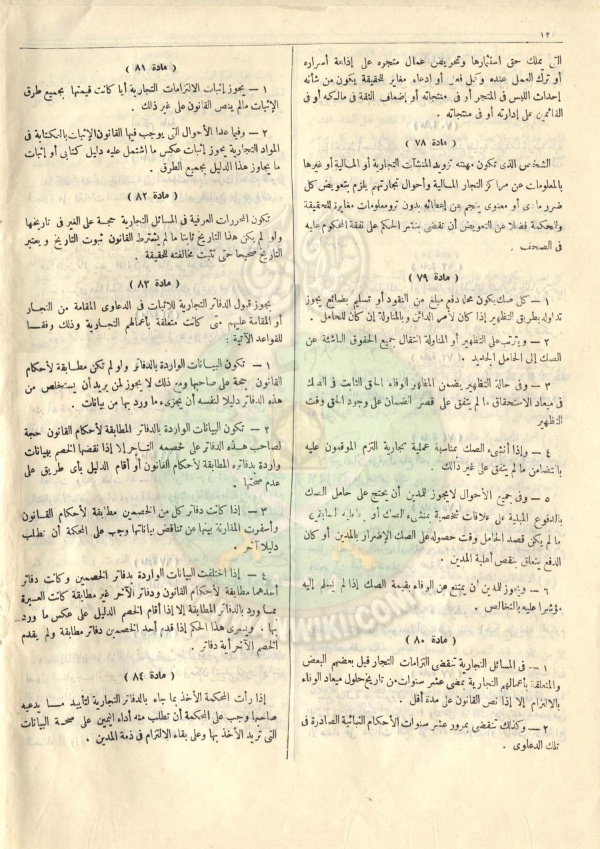 ١٢
التى يملك حتى استثمارها وتحريض عمال متجره على إذاعة أسراره
أو ترك العمل عنده وكل فعل أو إدعاء مغاير للحقيقة يكون من شأنه
إحداث اللبس فى المتجر أو فى منتجاته أو إضعاف الثقة فى مالكه أو فى
القائمين على إدارته أو فى منتجاته .
( مادة ٧٨ )
الشخص الذى تكون مهنته تزويد المنشآت التجارية أو المالية أو غيرها
بالمعلومات عن مراكز التجار المالية وأحوال تجارتهم يلزم بتعويض كل
ضرر مادى أو معنوى ينجم عن إعطائه بدون ترو معلومات مغايرة للحقيقة
وللمحكمة فضلا عن التعويض أن تقضى بنشر الحكم على نفقة المحكوم عليه
فى الصحف .
( مادة ٧٩ )
١ — كل صك يكون محله دفع مبلغ من النقود أو تسليم بضائع يجوز
تداوله بطريق التظهير إذا كان لأمر الدائن وبالمناولة إن كان للحامل .
٢ — ويترتب على التظهير أو المناولة انتقال جميع الحقوق الناشئة عن
الصك إلى الحامل الجديد .
٣ — وفى حالة التظهير يضمن المظهر الوفاء بالحق الثابت فى الصك
فى ميعاد الاستحقاق ما لم يتفق على قصر الضمان على وجود الحق وقت
التظهير
٤ — وإذا أنشىء الصك بمناسبة عملية تجارية التزم الموقعون عليه
بالتضامن ما لم يتفق على غير ذلك .
٥ — وفى جميع الأحوال لا يجوز للمدين أن يحتج على حامل الصك
بالدفوع المبنية على علاقات شخصية بمنشىء الصك أو بحامليه السابقين
ما لم يكن قصد الحامل وقت حصوله على الصك الإضرار بالمدين أو كان
الدفع يتعلق بنقص أهلية المدين .
٦ — ويجوز للمدين أن يمتنع عن الوفاء بقيمة الصك إذا لم يسلم إليه
مؤشرا عليه بالتخالص .
( مادة ٨٠ )
١ — فى المسائل التجارية تنقضى التزامات التجار قبل بعضهم البعض
والمتعلقة بأعمالهم التجارية بمضى عشر سنوات من تاريخ حلول ميعاد الوفاء
بالالتزام إلا إذا نص القانون على مدة أقل .
٢ — وكذلك تنقضى بمرور عشر سنوات الأحكام النهائية الصادرة فى
تلك الدعاوى .
( مادة ٨١ )
١ — يجوز إثبات الالتزامات التجارية أيا كانت قيمتها بجميع طرق
الإثبات ما لم ينص القانون على غير ذلك .
٢ — وفيما عدا الأحوال التى يوجب فيها القانون الإثبات بالكتابة فى
المواد التجارية يجوز إثبات عكس ما اشتمل عليه دليل كتابى أو إثبات
ما يجاوز هذا الدليل بجميع الطرق .
( مادة ٨٢ )
تكون المحررات العرفية فى المسائل التجارية حجة على الغير فى تاريخها
ولو لم يكن هذا التاريخ ثابتا ما لم يشترط القانون ثبوت التاريخ ويعتبر
التاريخ صحيحا حتى تثبت مخالفته للحقيقة .
( مادة ٨٣ )
يجوز قبول الدفاتر التجارية للاثبات فى الدعاوى المقامة من التجار
أو المقامة عليهم متى كانت متعلقة بأعمالهم التجارية وذلك وفقا
للقواعد الآتية :
١ — تكون البيانات الواردة بالدفاتر ولو لم تكن مطابقة لأحكام
القانون حجة على صاحبها ومع ذلك لا يجوز لمن يريد أن يستخلص من
هذه الدفاتر دليلا لنفسه أن يجزىء ما ورد بها من بيانات .
٢ — تكون البيانات الواردة بالدفاتر المطابقة لأحكام القانون حجة
لصاحب هذه الدفاتر على خصمه التاجر إلا إذا نقضها الخصم ببيانات
واردة بدفاتره المطابقة لأحكام القانون أو أقام الدليل بأى طريق على
عدم صحتها .
٣ — إذا كانت دفاتر كل من الخصمين مطابقة لأحكام القانون
وأسفرت المقارنة بينها عن تناقض بياناتها وجب على المحكمة أن تطلب
دليلا آخر
٤ — إذا اختلفت البيانات الواردة بدفاتر الخصمين وكانت دفاتر
أحدهما مطابقة لأحكام القانون ودفاتر الآخر غير مطابقة كانت العبرة
بما ورد بالدفاتر المطابقة إلا إذا أقام الخصم الدليل على عكس ما ورد
بها . ويسرى هذا الحكم إذا قدم أحد الخصمين دفاتر مطابقة ولم يقدم
الخصم الآخر أية دفاتر .
( مادة ٨٤ )
إذا رأت المحكمة الأخذ بما جاء بالدفاتر التجارية لتأييد ما يدعيه
صاحبها وجب على المحكمة أن تطلب منه أداء اليمين على صحة البيانات
التى تريد الأخذ بها وعلى بقاء الالتزام فى ذمة المدين .